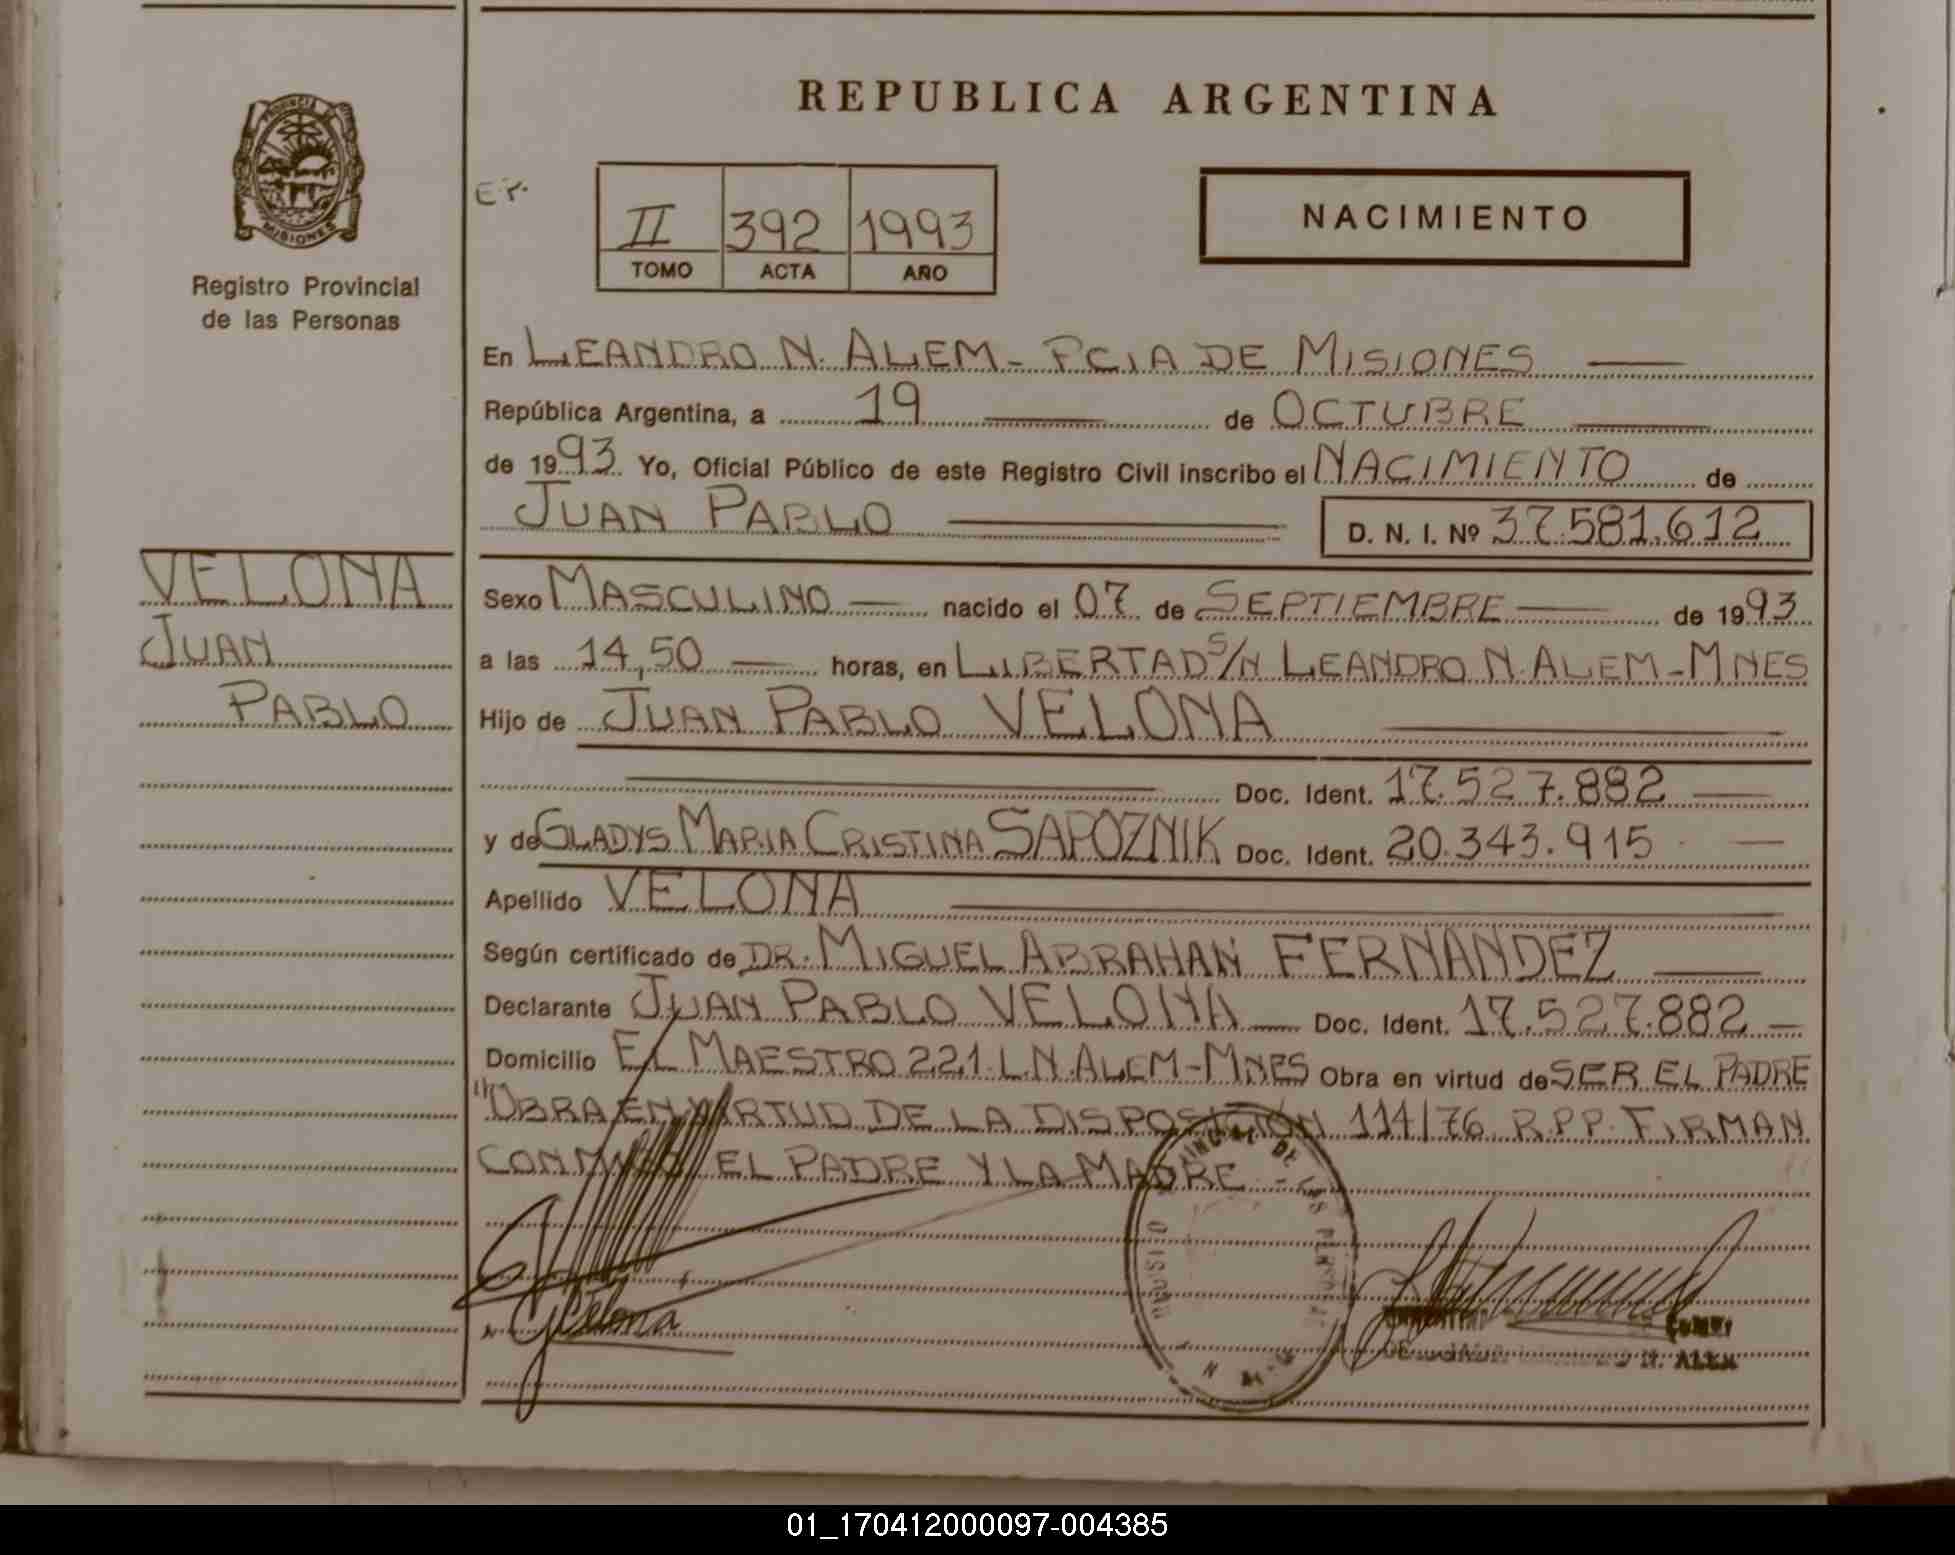 REPUBLICA ARGENTINA
PROVINCIA DE
MISIONES
Registro Provincial
de las Personas
II 392 1993
TOMO ACTA AÑO
NACIMIENTO
En LEANDRO N. ALEM - PCIA DE MISIONES
República Argentina, a 19 de OCTUBRE
de 1993 Yo, Oficial Público de este Registro Civil inscribo el NACIMIENTO de
JUAN PABLO D. N. I. Nº 37.581.612
VELONA
JUAN
PABLO
Sexo MASCULINO nacido el 07 de SEPTIEMBRE de 1993
a las 14,50 horas, en LIBERTAD S/N LEANDRO N. ALEM - MNES
Hijo de JUAN PABLO VELONA
Doc. Ident. 17.527.882
y de GLADYS MARIA CRISTINA SAPOZNIK Doc. Ident. 20.343.915
Apellido VELONA
Según certificado de DR. MIGUEL ABRAHAN FERNANDEZ
Declarante JUAN PABLO VELONA Doc. Ident. 17.527.882
Domicilio EL MAESTRO 221. L.N. ALEM - MNES Obra en virtud de SER EL PADRE
OBRA EN VIRTUD DE LA DISPOSICION 114/76 R.P.P. FIRMAN
CONMIGO EL PADRE Y LA MADRE -
DE LAS
N. ALEM
01_170412000097-004385